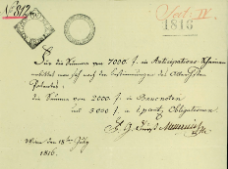 No 812
Sect. IV.
1816
Für die Summe von 7000 f. in Anticipations Scheinen
erbittet man sich nach den Bestimmungen des Allerhöchsten
Patentes
die Summe von 2000 f. in Banknoten
und 5000 f. in 1 pr% Obligationen
Wien den 18ten July
1816.